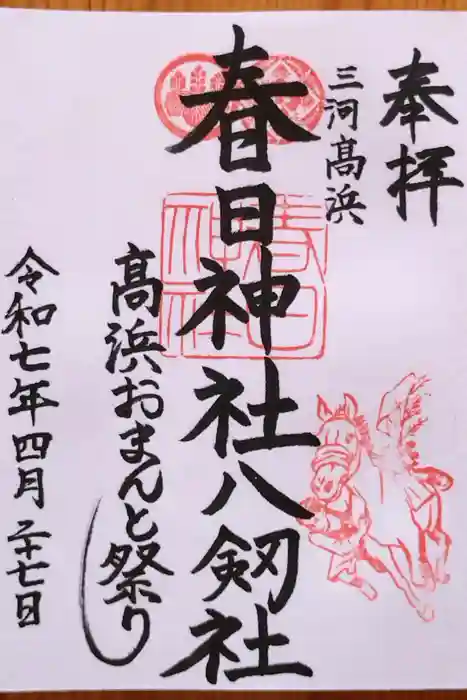 奉拝
三河高浜
春日神社八剱社
春日
神社
高浜おまんと祭り
令和七年四月二十七日